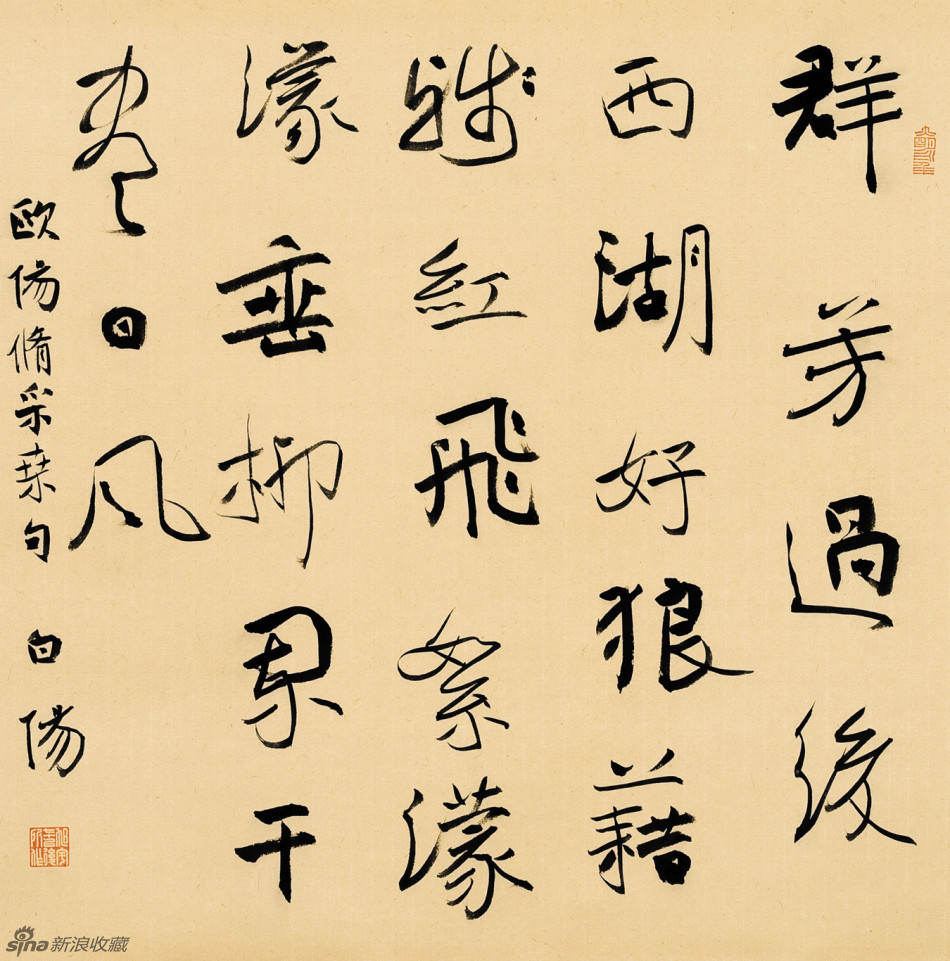 群芳過後
西湖好狼藉
殘紅飛絮濛
濛垂柳闌干
盡日風
歐陽脩采桑句 白陽
sina新浪收藏